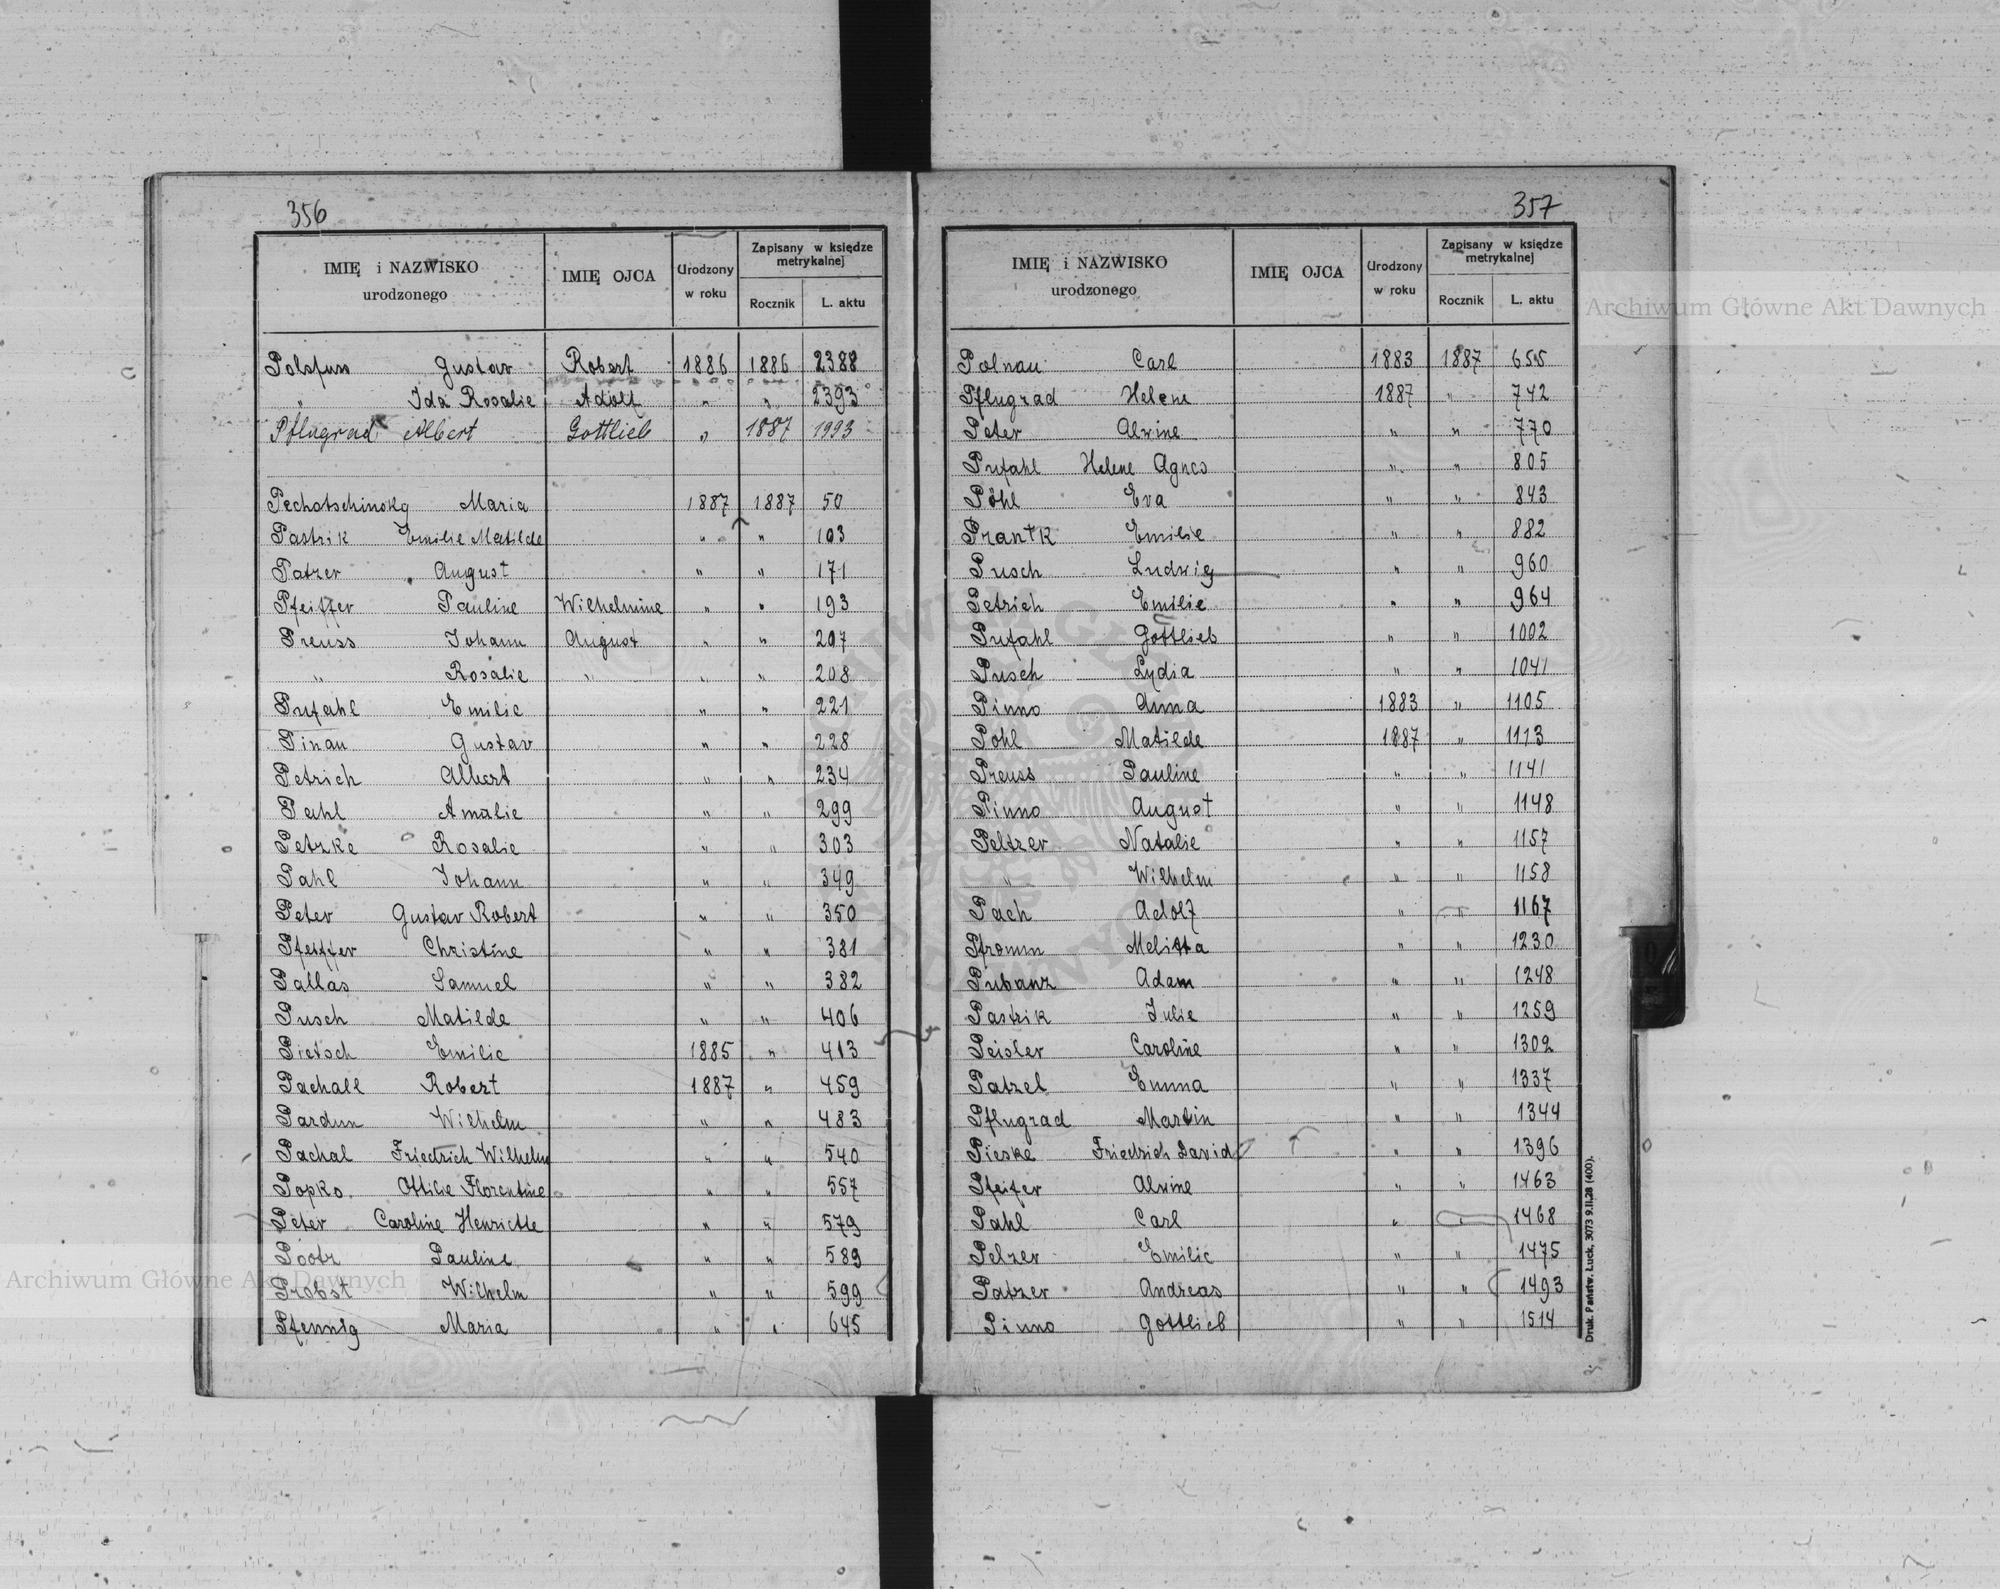 356
IMIĘ i NAZWISKO urodzonego IMIĘ OJCA Urodzony w roku Zapisany w księdze metrykalnej Rocznik L. aktu
Polsfuss Gustav Robert 1886 1886 2388
" Ida Rosalie Adolf " " 2393
Pflugrad Albert Gottlieb " 1887 1993
Pechotschinsky Maria 1887 1887 50
Pastrik Emilie Matilde " " 103
Patzer August " " 171
Pfeiffer Pauline Wilhelmine " " 193
Preuss Johann August " " 207
" Rosalie " " " 208
Pufahl Emilie " " 221
Pinau Gustav " " 228
Petrich Albert " " 234
Pahl Amalie " " 299
Petzke Rosalie " " 303
Pahl Johann " " 349
Peter Gustav Robert " " 350
Pfeiffer Christine " " 381
Pallas Samuel " " 382
Pusch Matilde " " 406
Pietsch Emilie 1885 " 413
Pachall Robert 1887 " 459
Pardun Wilhelm " " 483
Pachal Friedrich Wilhelm " " 540
Popko Ottilie Florentine " " 557
Peter Caroline Henriette " " 579
Pootz Pauline " " 589
Probst Wilhelm " " 599
Pfennig Maria " " 645
357
IMIĘ i NAZWISKO urodzonego IMIĘ OJCA Urodzony w roku Zapisany w księdze metrykalnej Rocznik L. aktu
Polnau Carl 1883 1887 655
Pflugrad Helene 1887 " 742
Peter Alwine " " 770
Pufahl Helene Agnes " " 805
Pöhl Eva " " 843
Prantk Emilie " " 882
Pusch Ludwig " " 960
Petrich Emilie " " 964
Pufahl Gottlieb " " 1002
Pusch Lydia " " 1041
Pinno Anna 1883 " 1105
Pohl Matilde 1887 " 1113
Preuss Pauline " " 1141
Pinno August " " 1148
Peltzer Natalie " " 1157
" Wilhelm " " 1158
Pach Adolf " " 1167
Pfromm Melitta " " 1230
Pubanz Adam " " 1248
Pastrik Julie " " 1259
Peisler Caroline " " 1302
Patzel Emma " " 1337
Pflugrad Martin " " 1344
Pieske Friedrich David " " 1396
Pfeifer Alwine " " 1463
Pahl Carl " " 1468
Pelzer Emilie " " 1475
Patzer Andreas " " 1493
Pinno Gottlieb " " 1514
Druk. Państw. Łuck, 3073 9.II.28 (400).
Archiwum Główne Akt Dawnych
Archiwum Główne Akt Dawnych